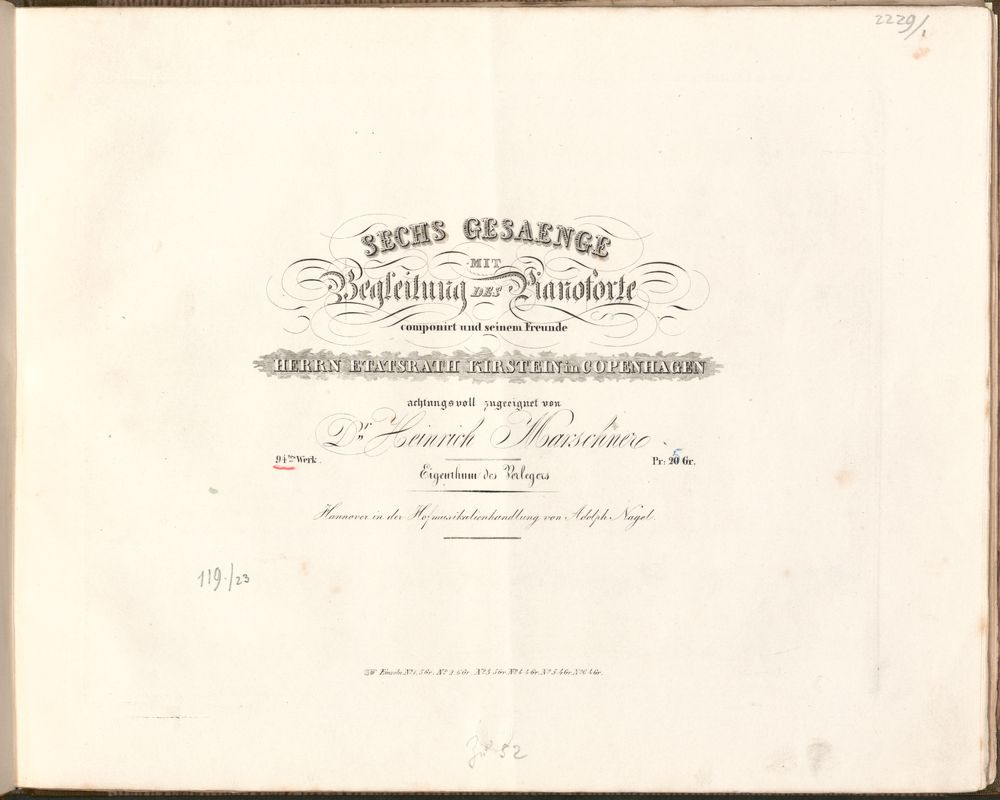 2229/1
SECHS GESAENGE
MIT
Begleitung DES Pianoforte
componirt und seinem Freunde
HERRN ETATSRATH KIRSTEIN in COPENHAGEN
achtungsvoll zugeeignet von
Dr. Heinrich Marschner.
94tes Werk.
Pr: 20 Gr.
Eigenthum des Verlegers
Hannover in der Hofmusikalienhandlung von Adolph Nagel.
119./23
Einzeln No 1. 5 Gr. No 2. 6 Gr. No 3. 5 Gr. No 4. 4 Gr. No 5. 4 Gr. No 6. 4 Gr.
52